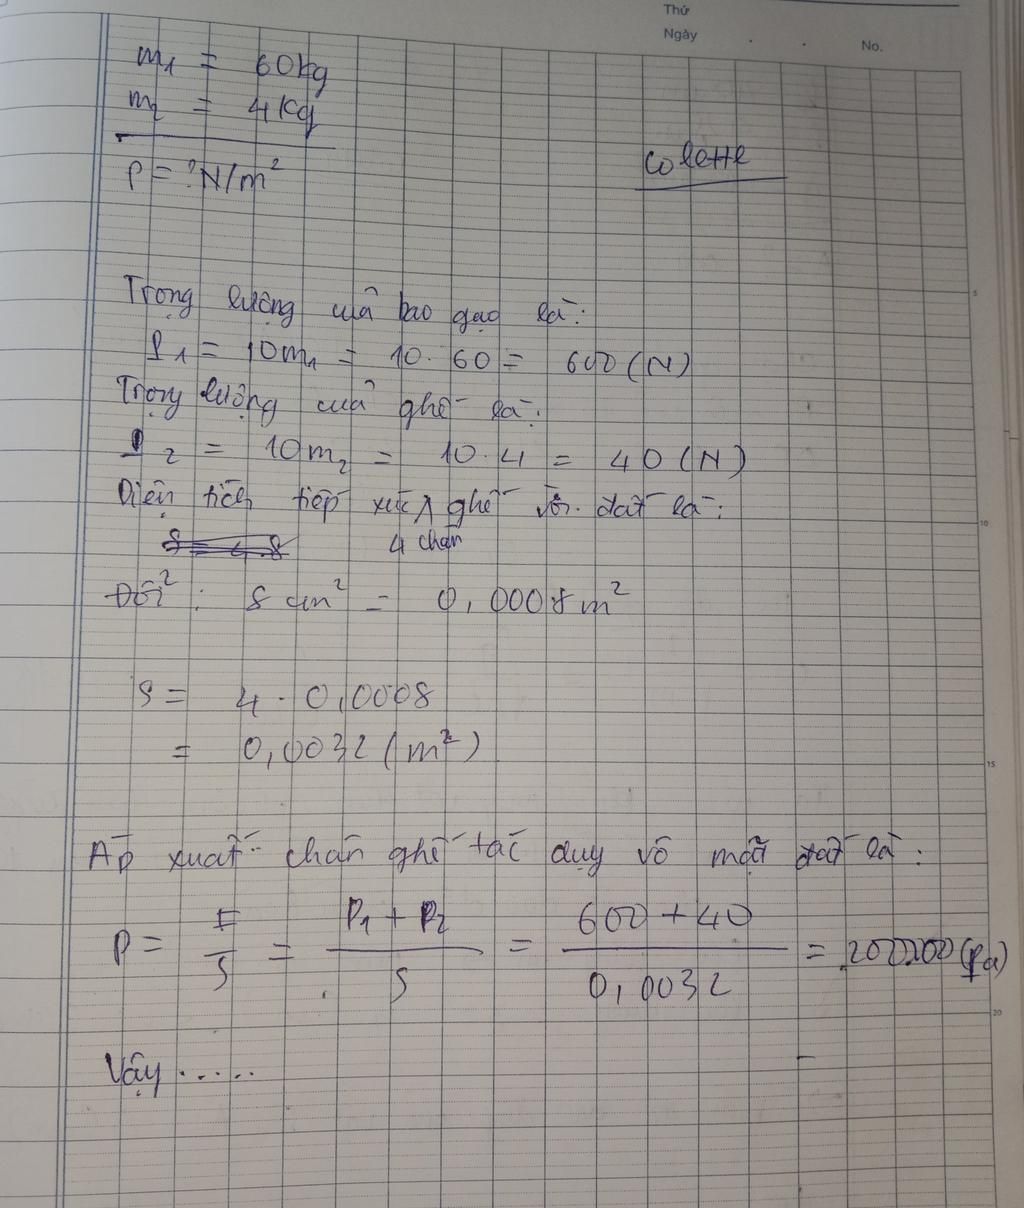 Thứ
Ngày . . No.
m1 = 60kg
m2 = 4Kg
P = ? N/m²
colette
Trọng lượng của bao gạo là:
P1 = 10m1 = 10.60 = 600 (N)
Trọng lượng của ghế là:
P2 = 10m2 = 10.4 = 40 (N)
Diện tích tiếp xúc 4 chân ghế với đất là:
S = 4.8
Đổi: 8 cm² = 0,0008 m²
S = 4.0,0008
= 0,0032 (m²)
Áp xuất chân ghế tác dụy vô mặt đất là:
P = F/S = P1 + P2/S = 600 + 40/0,0032 = 200200 (Pa)
Vậy .....
5
10
15
20